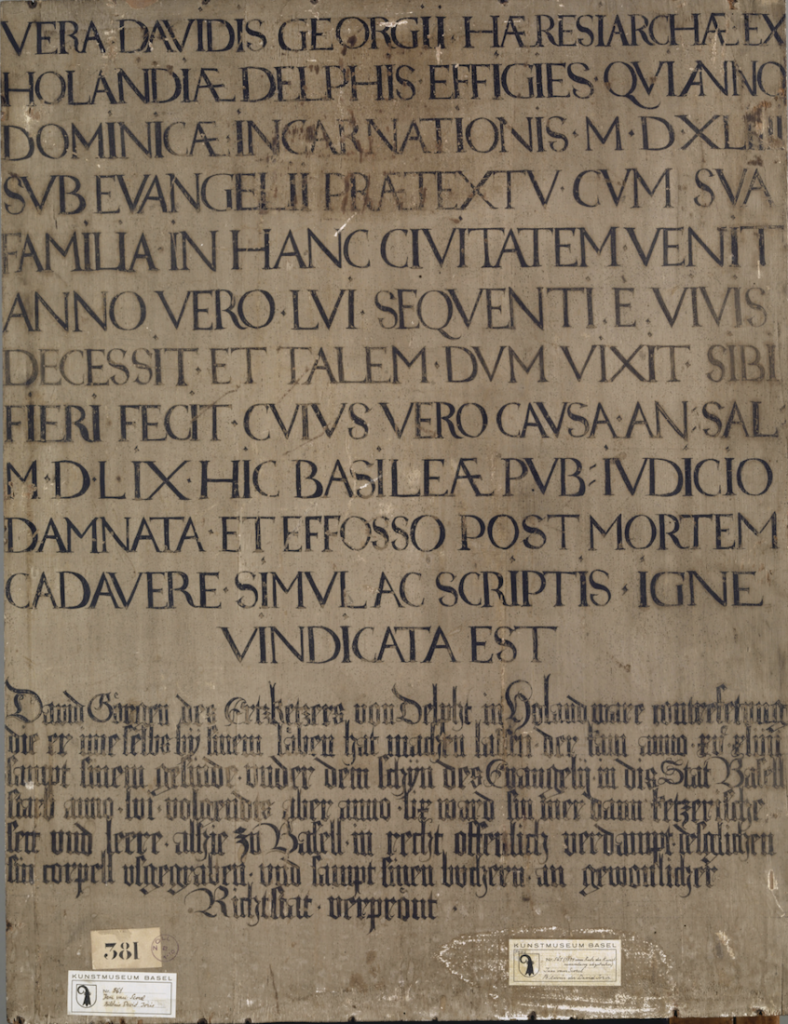 VERA DAVIDIS GEORGII HÆRESIARCHÆ EX
HOLANDIÆ DELPHIS EFFIGIES · QVI ANNO
DOMINICÆ INCARNATIONIS · M · D · XLIIII
SVB EVANGELII PRÆTEXTV · CVM SVA
FAMILIA IN HANC CIVITATEM VENIT
ANNO VERO · LVI · SEQVENTI · È · VIVIS
DECESSIT · ET TALEM · DVM VIXIT SIBI
FIERI FECIT · CVIVS VERO CAVSA · AN: SAL:
M · D · LIX · HIC BASILEÆ PVB: IVDICIO
DAMNATA · ET EFFOSSO POST MORTEM
CADAVERE · SIMVL AC SCRIPTIS · IGNE
VINDICATA EST
David Görgen des Ertzketzers von Delpht in Holand ware contrefetung
die er ime selbs by sinem läben hat machen lassen der kam anno · xv xliiii
sampt sinem gesinde vnder dem schyn des Euangelij in dis Stat Basell
starb anno · lvi · volgendts aber anno · lix ward sin hier dann ketzerische
sect vnd leere · alhie zu Basell in recht offenlich verdampt desglichen
sin corpell vsgegraben · vnd sampt sinen buchern · an gewonlicher
Richtstat · verprönt ·
381
KUNSTMUSEUM BASEL
KUNSTMUSEUM BASEL